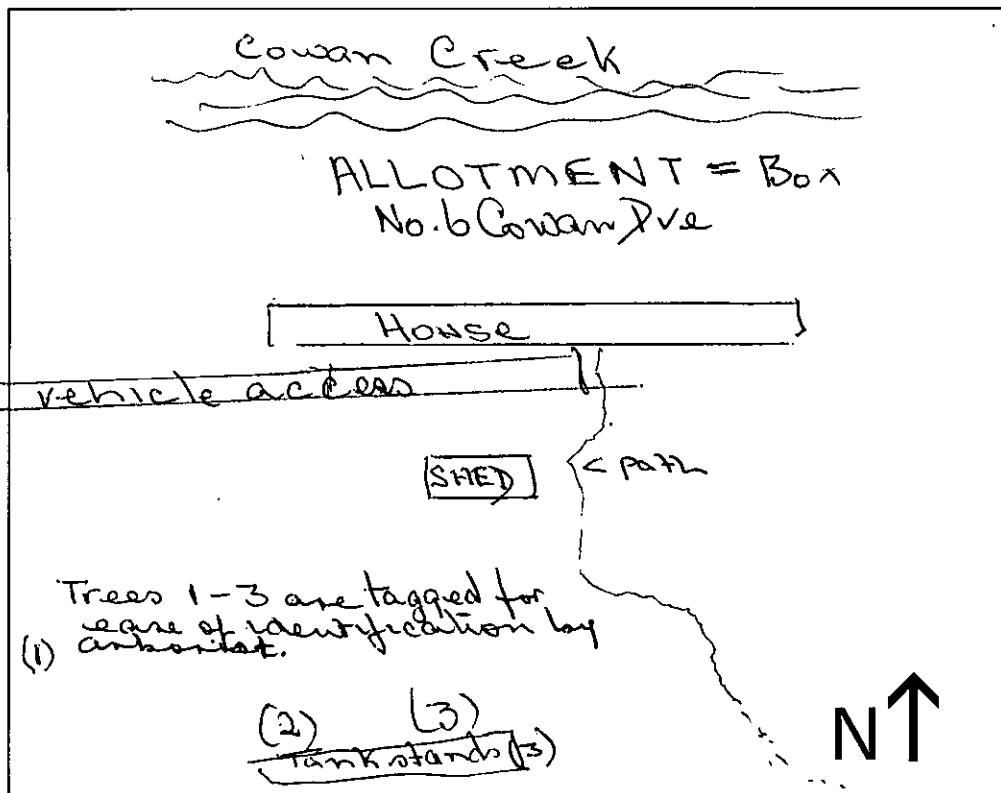 Cowan Creek
ALLOTMENT = Box
No. 6 Cowan Dve
House
vehicle access
SHED
< path
Trees 1-3 are tagged for
ease of identification by
(1) arborist.
(2) (3)
Tank stands (3)
N